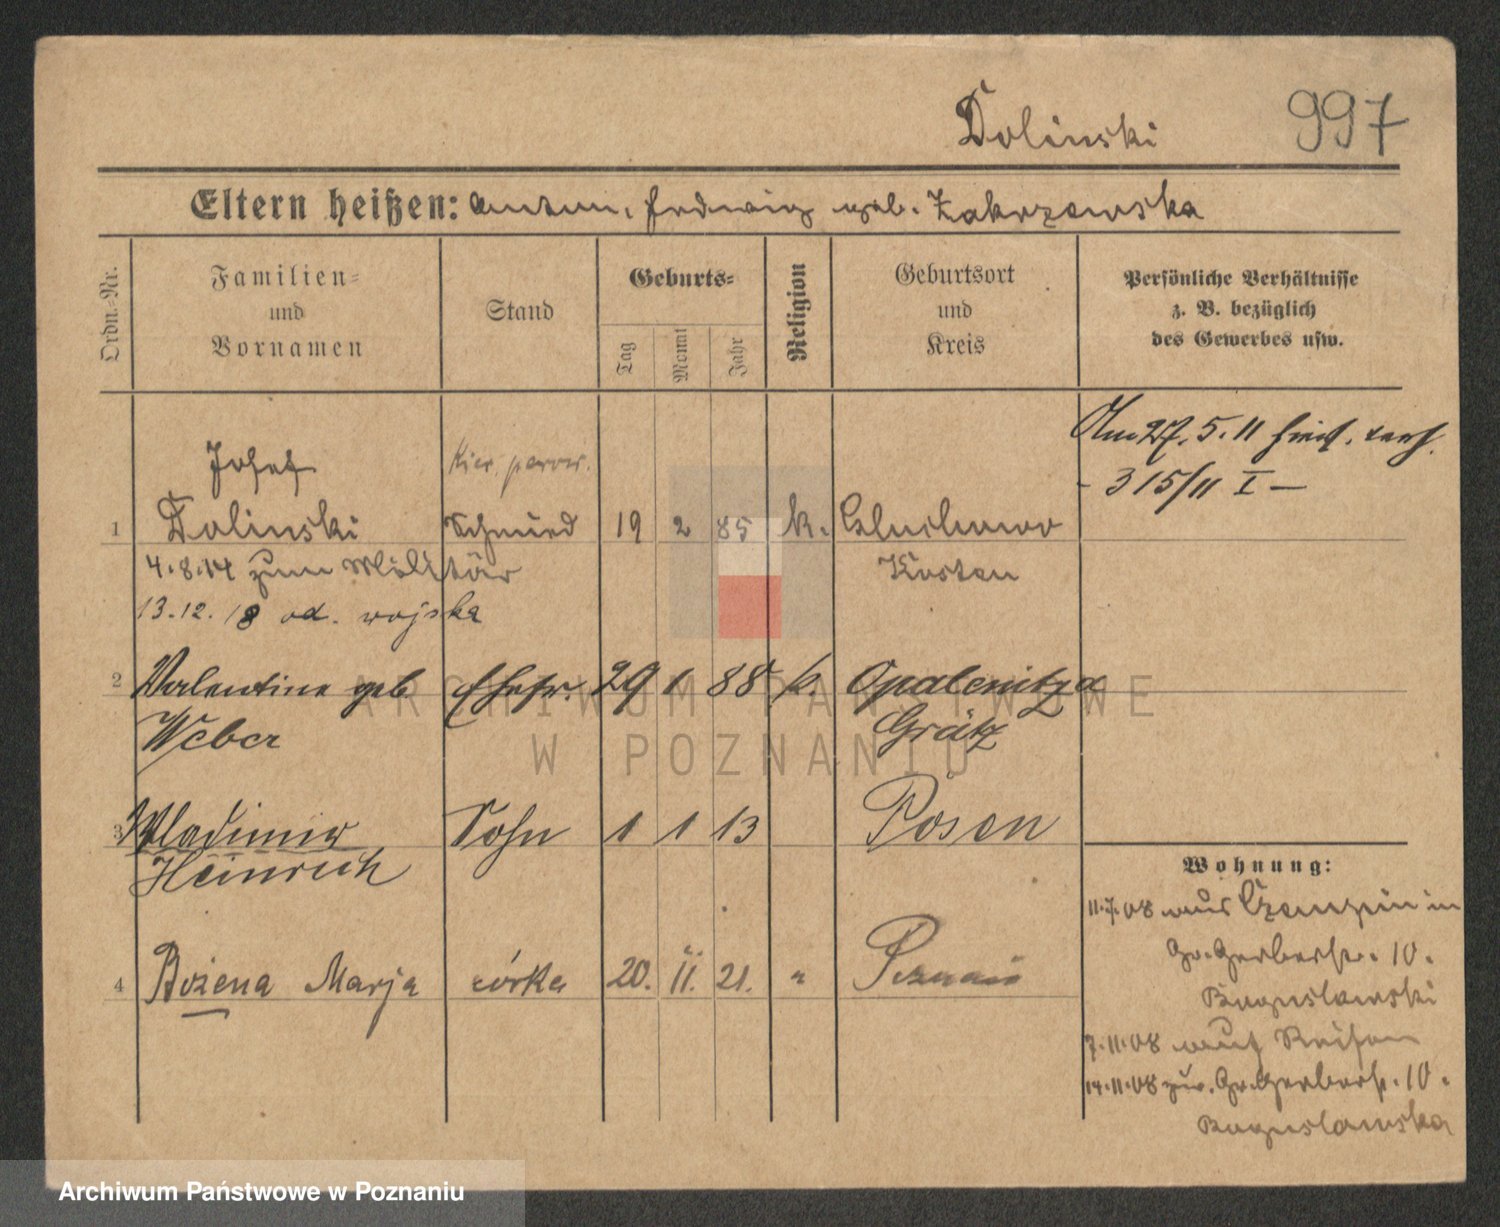 Dolinski 997
Eltern heißen: Anton, Hedwig geb. Zakrzewska
Ordn.-Nr.
Familien-
und
Vornamen
Stand
Geburts-
Tag
Monat
Jahr
Religion
Geburtsort
und
Kreis
Persönliche Verhältnisse
z. B. bezüglich
des Gewerbes usw.
Am 27. 5. 11 hies. verh.
- 315/11 I -
Josef
1 Dolinski Schmied 19 2 85 k. Gluchowo
Kosten
4.8.14 zum Militär
13.12.18 od. wojska
2 Valentine geb. Ehefr. 29 1 88 k. Opalenitza
Weber Grätz
3 Wladimir Sohn 1 1 13 Posen
Heinrich
4 Bożena Marja córka 20. II. 21. " Poznań
Wohnung:
11.7.08 aus Czempin in
Gr. Gerberstr. 10.
Boguslawski
7.11.08 auf Reisen
14.11.08 zur. Gr. Gerberstr. 10.
Boguslawska
ARCHIWUM PAŃSTWOWE
W POZNANIU
Archiwum Państwowe w Poznaniu